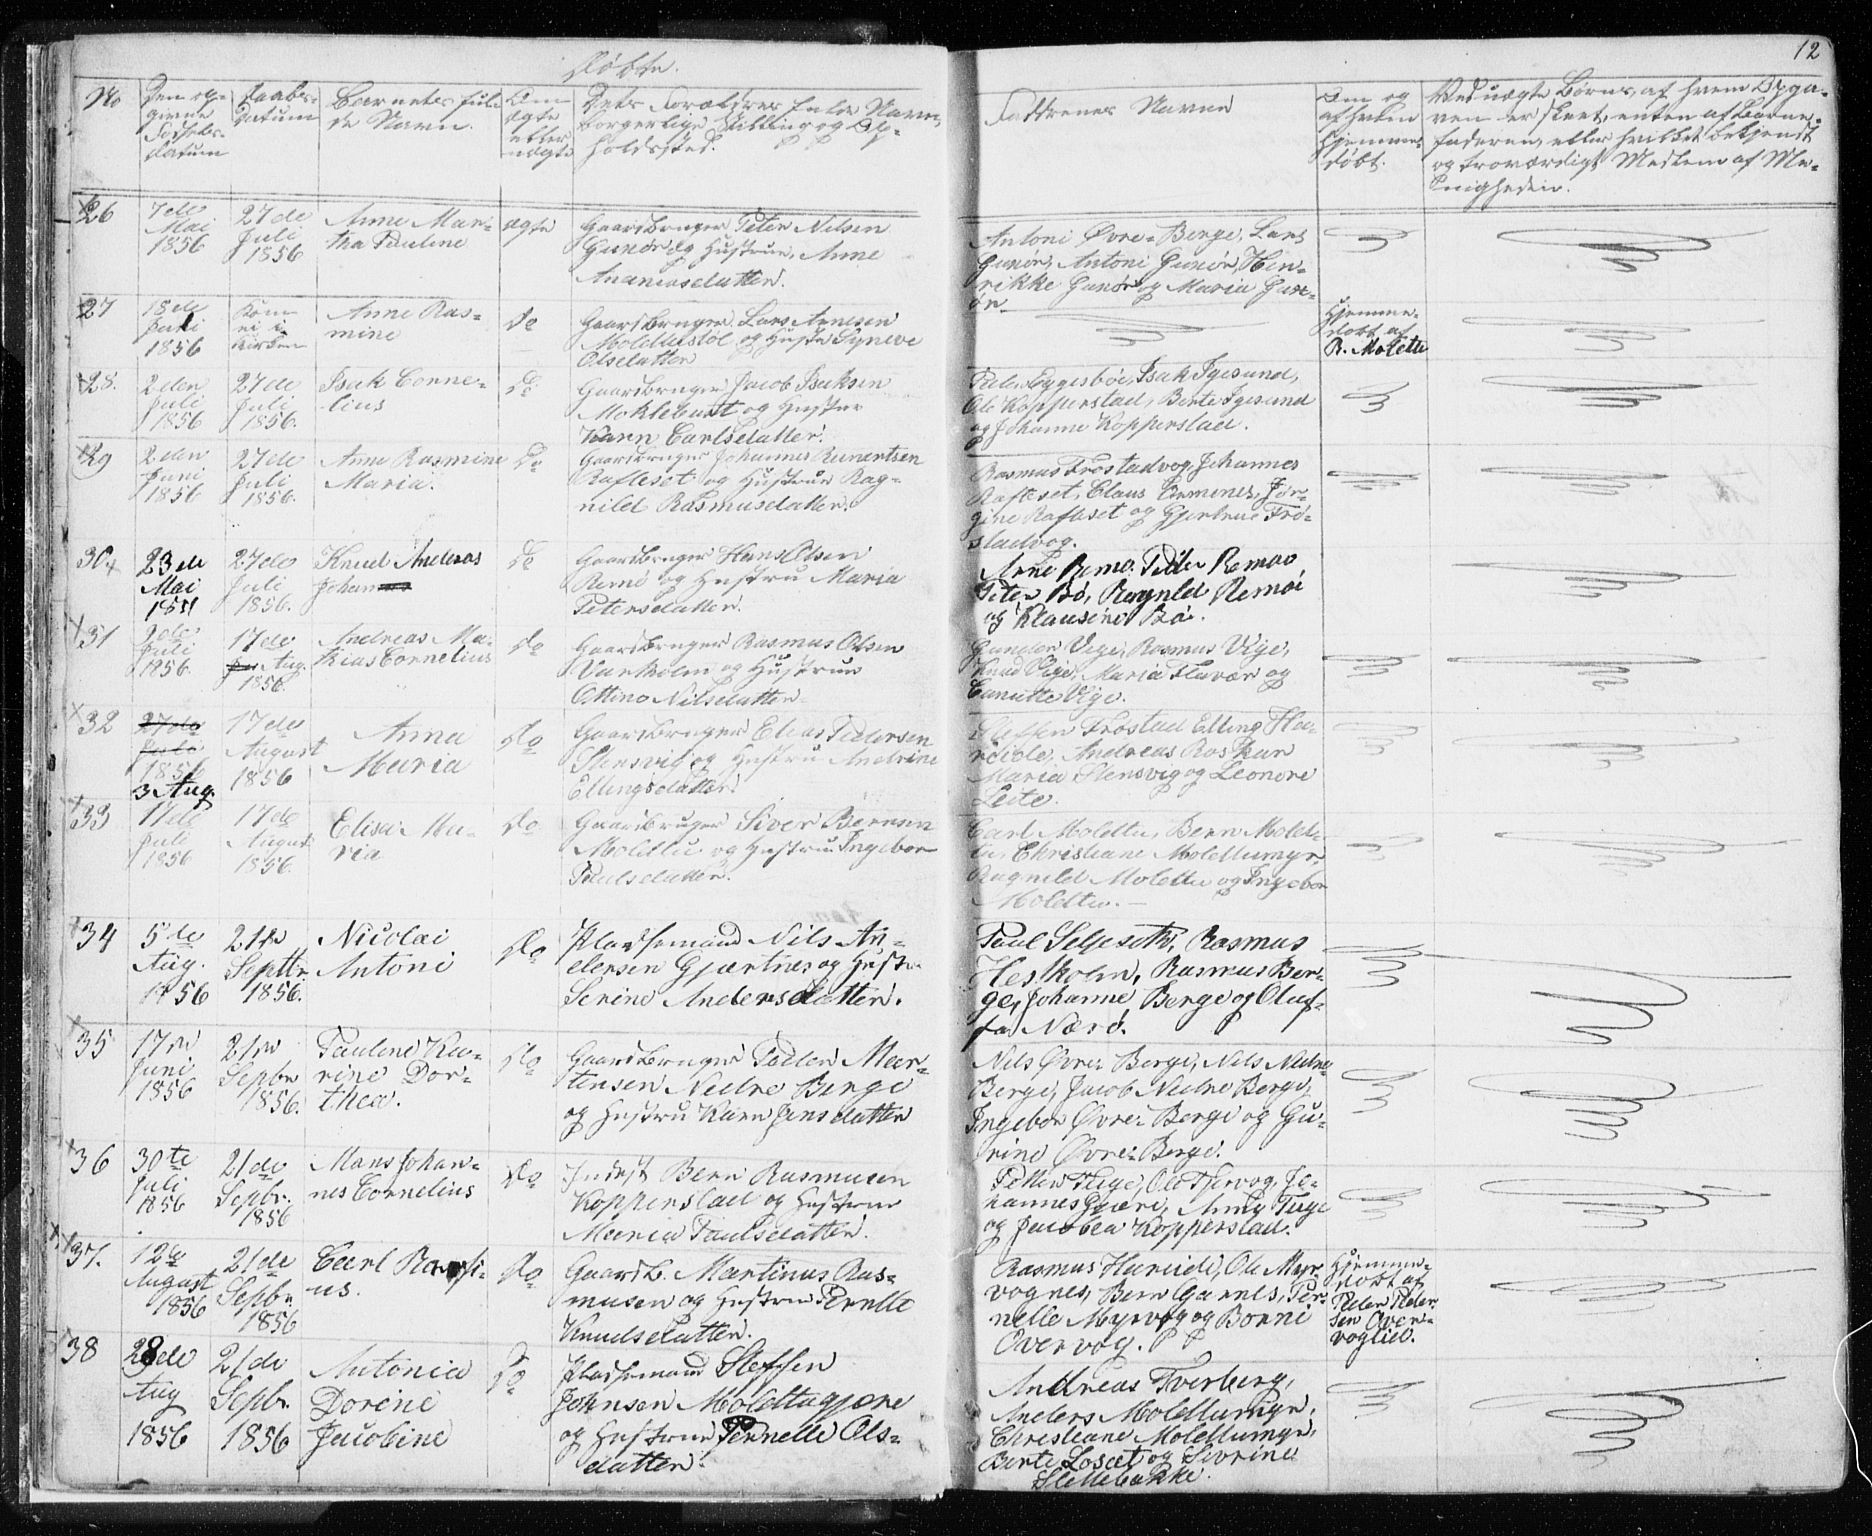 Døbte.
12
No
Den op-
givne
Fødsels-
datum
Daabs-
datum
Barnets ful-
de Navn.
Om
ægte
eller
uægte
Dets Forældres fulde Navn,
borgerlige Stilling og Op-
holdssted.
Faddrenes Navne
Om og
af hvem
hjemme-
døbt.
Ved uægte Børn, af hvem Opga-
ven er skeet, enten af Barne-
faderen, eller hvilket bekjendt
og troværdigt Medlem af Me-
nigheden.
26
7de
Mai
1856
27de
Juli
1856
Anne Mar-
tha Pauline
ægte
Gaardbruger Peter Nilsen
Gurør og Hustrue, Anne
Ananiasdatter.
Antoni Øvre-Berge, Lars
Gurør, Antoni Gurør, Hen-
rikke Gurør og Maria Gur-
ør
27
18de
Juli
1856
Kom
ei i
Kirken
Anne Ras-
mine
do
Gaardbruger Lars Arnesen
Moldtustøl og Hustr Syneve
Olsdatter
Hjemme-
døbt af
B. Moldtu
28.
2den
Juli
1856
27de
Juli
1856.
Isak Corne-
lius
do
Gaardbruger Jacob Isaksen
Moklebust og Hustru
Karn Carlsdatter.
Peder Eggesbøe, Isak Igesund,
Ole Kopperstad, Berte Igesund
og Johanne Kopperstad.
29
2den
Juni
1856
27de
Juli
1856.
Anne Rasmine
Maria.
do
Gaardbruger Johannes Runertsen
Rafteset og Hustrue Rag-
nild Rasmusdatter.
Rasmus Frostadvog, Johannes
Rafteset, Claus Remenes, Jør-
gine Rafteset og Gjertrue Fro-
stadvog.
30
23de
Mai
1851
27de
Juli
1856.
Knud Andreas
Johan
do
Gaardbruger Hans Olsen
Remø og Hustru Maria
Petersdatter.
Arne Remø. Peder Remøe
Peter Bø, Ragnild Remøe
og Klausine Bø.
31
2den
Juli
1856.
17de
Aug.
1856.
Andreas Ma-
thias Cornelius
do
Gaardbruger Rasmus Olsen
Vartholm og Hustrue
Ottine Nilsdatter
Gunder Vige, Rasmus Vige,
Knud Vige, Maria Flavær og
Canutte Vige.
32
27de
Juli
1856
3 Aug.
17de
August
1856
Anna
Maria
do
Gaardbruger Elias Pedersen
Stensvig og Hustru Andrine
Ellingsdatter
Steffen Frostad Elling Ha-
reide, Andreas Roskar
Maria Stensvig og Leonore
Leite.
33
17de
Juli
1856
17de
August
1856
Elisa Ma-
ria
do
Gaardbruger Siver Bernsen
Moldtu og Hustru Ingebor
Paulsdatter.
Carl Moldtu, Bern Mold-
tu, Christiane Moldtumyr,
Ragnild Moldtu og Ingebor
Moldtu.
34
5de
Aug.
1856
21de
Septbr
1856.
Nicolai
Antoni
do
Pladsemand Nils An-
dersen Gjærtnes og Hustr.
Serine Andersdatter.
Paul Seljeseth, Rasmus
Hestholm, Rasmus Ber-
ge, Johanne Berge og Oluf-
fa Nærø.
35
17de
Juni
1856
21de
Sepbr
1856.
Pauline Ka-
rine Dor-
thea.
do
Gaardbruger Peder Mar-
tensen Nedre Berge
og Hustru Karn Jensdatter
Nils Øvre-Berge, Nils Nedre
Berge, Jacob Nedre Berge,
Ingebor Øvre-Berge og Gu-
rine Øvre-Berge.
36
30te
Juli
1856
21de
Sepbr.
1856
Mans Johan-
nes Cornelius
do
Inderst Bern Rasmusen
Kopperstad og Hustrue
Maria Paulsdatter.
Petter Teige, Ole Tjervog, Jo-
hannes Gjære, Anne Teige
og Jacobea Kopperstad.
37.
12te
August
1856
21de
Sepbr.
1856
Carl Rasmi-
us.
do
Gaardb. Martinus Ras-
musen og Hustrue Pernelle
Knudsdatter.
Rasmus Hareide, Ole Myr
vognes, Bern Garnes, Per-
nelle Myrvog og Bonni
Overvog.
Hjemme-
døbt af
Peder Peder-
sen Over-
voglid.
38
28de
Aug
1856
21de
Sepbr
1856
Antonia
Dorine
Jacobine
do
Pladsemand Steffen
Johnsen Moldtugjære
og Hustrue Pernelle Ols-
datter.
Andreas Tverberg,
Anders Moldtumyr,
Christiane Moldtumyr,
Berte Loset og Sivrine
Slettebakke.